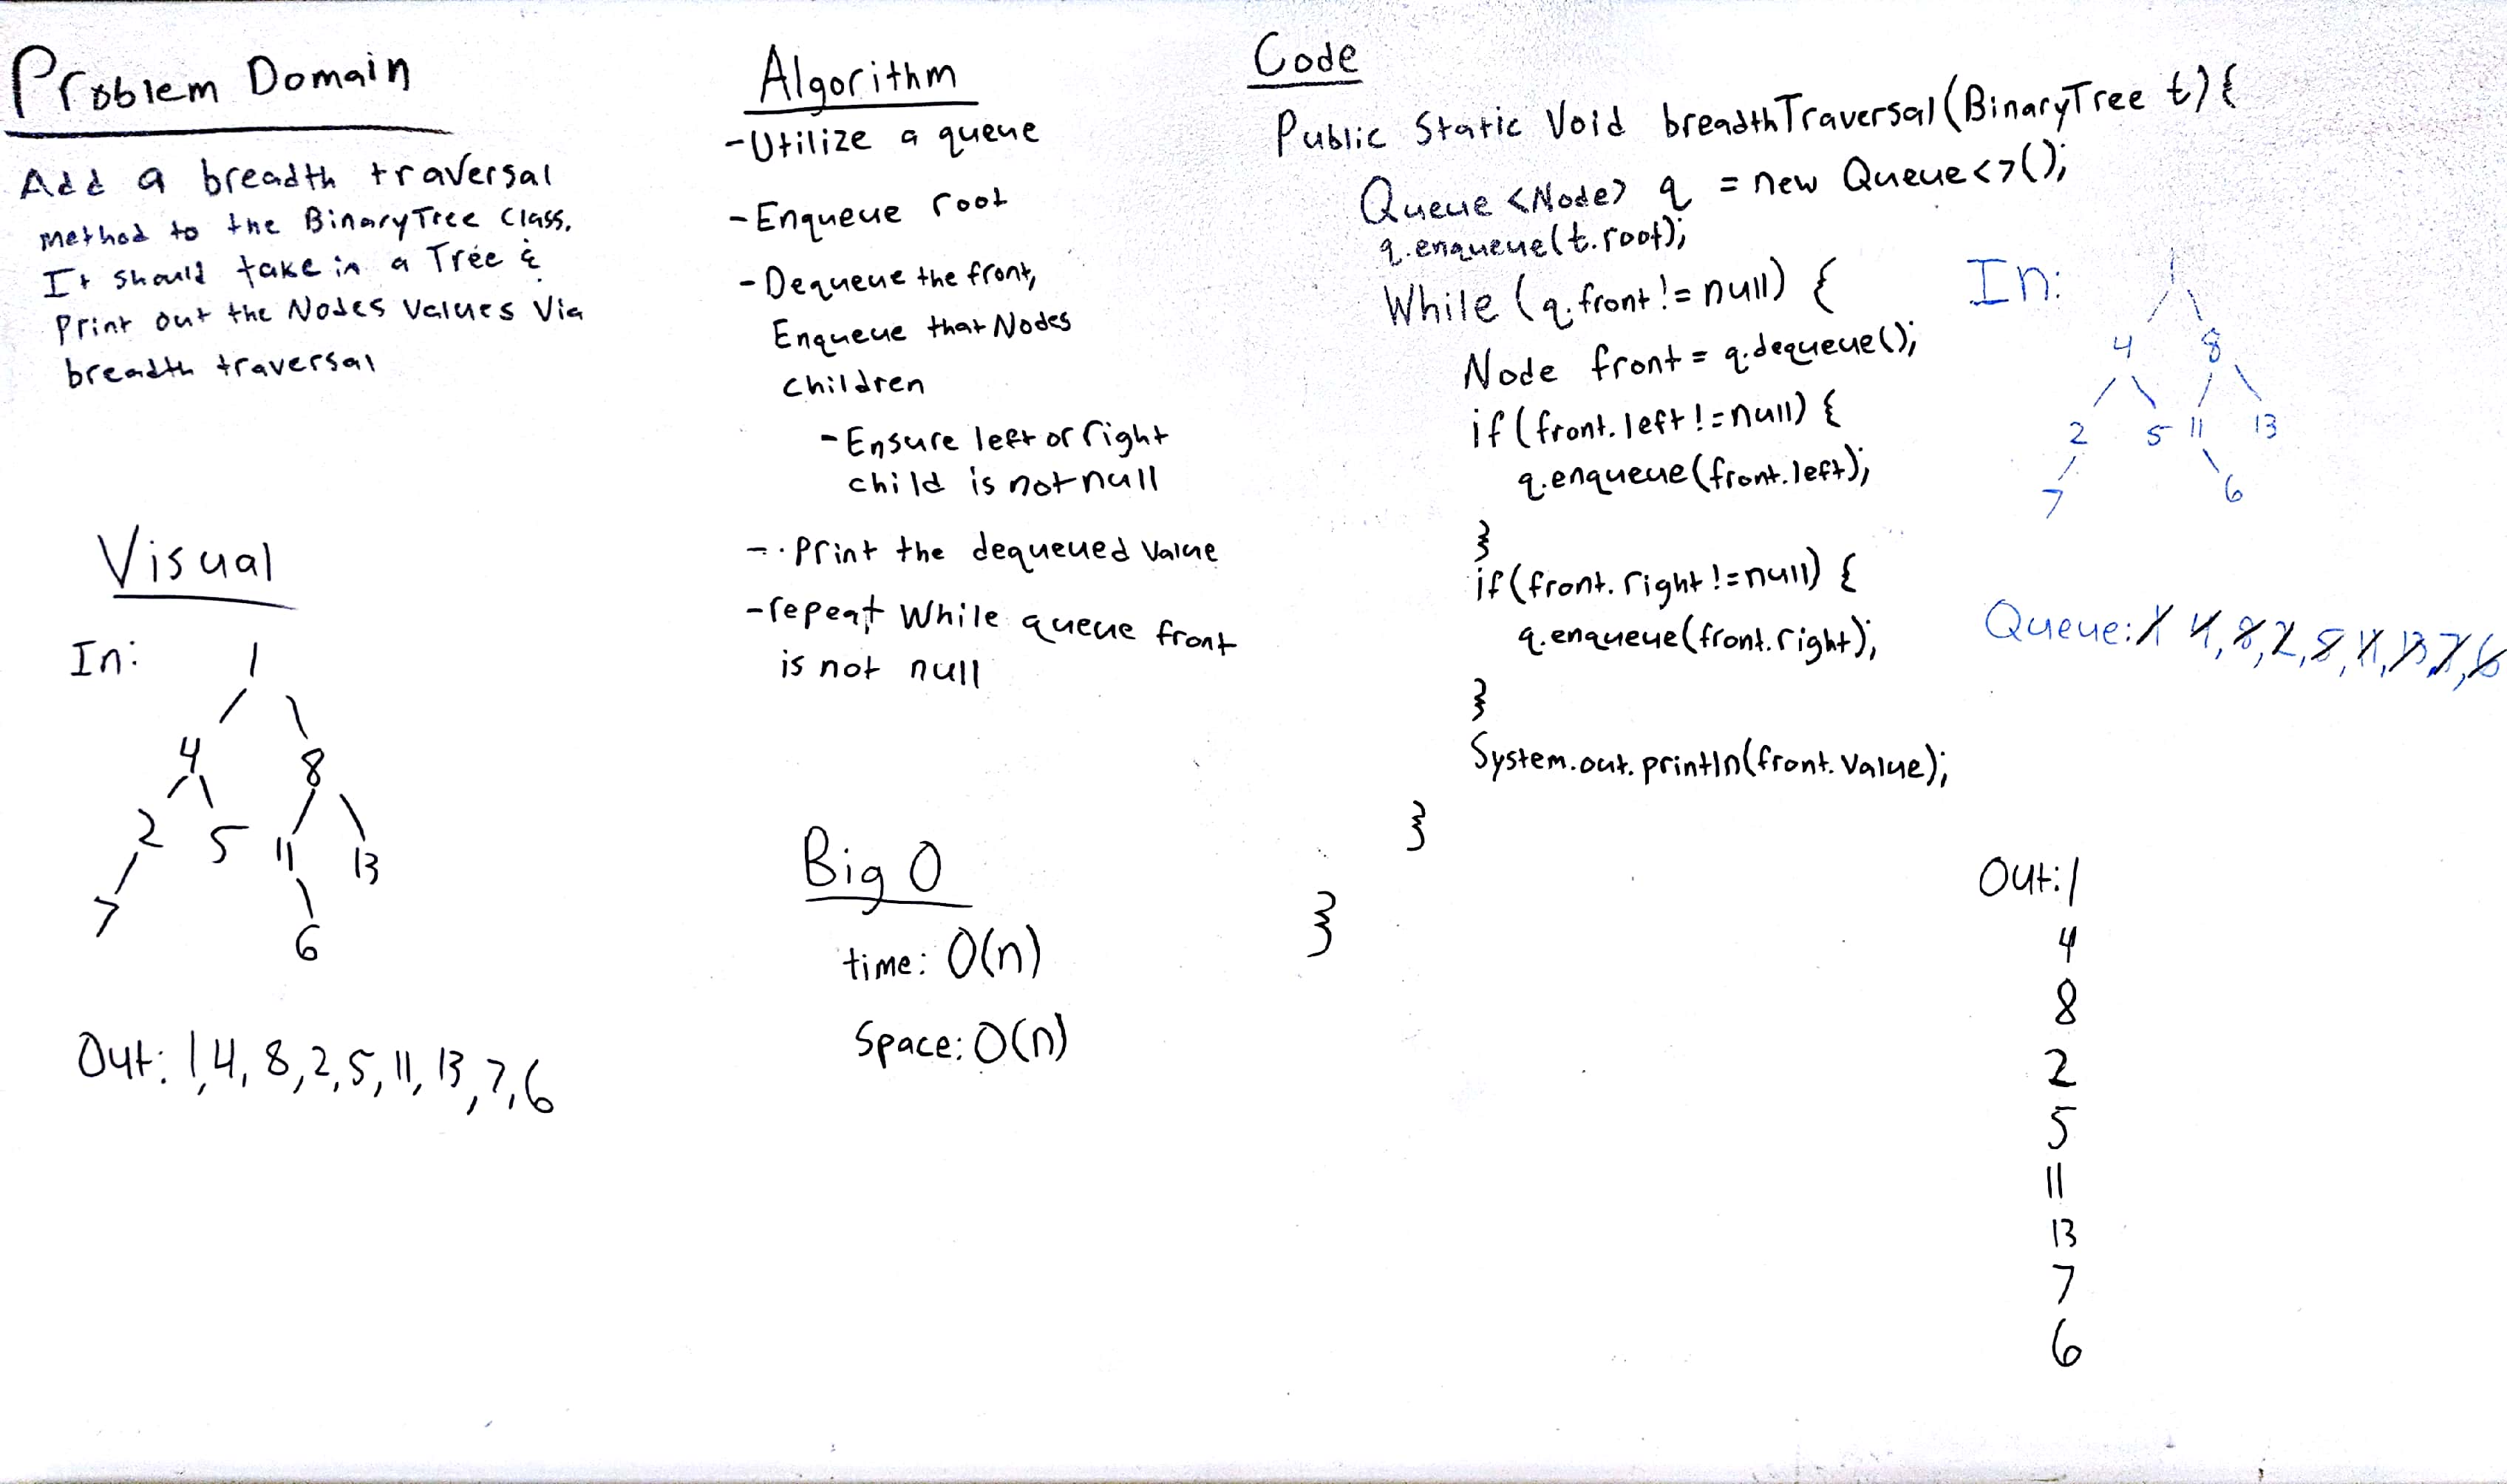 Problem Domain
Add a breadth traversal
method to the BinaryTree class.
It should take in a Tree &
Print out the Nodes Values Via
breadth traversal
Visual
In:
1
4 8
2 5 11 13
7 6
Out: 1,4, 8,2,5, 11, 13,7,6
Algorithm
-Utilize a queue
-Enqueue root
-Dequeue the front,
Enqueue that Nodes
children
-Ensure left or right
child is not null
-Print the dequeued Value
-repeat While queue front
is not null
Big O
time: O(n)
Space: O(n)
Code
Public Static Void breadthTraversal(BinaryTree t){
Queue <Node> q = new Queue<>();
q.enqueue(t.root);
While (q.front != null) {
Node front = q.dequeue();
if(front.left != null) {
q.enqueue(front.left);
}
if(front.right != null) {
q.enqueue(front.right);
}
System.out.println(front.Value);
}
}
In:
1
4 8
2 5 11 13
7 6
Queue: 1 4, 8, 2, 5, 11, 13, 7, 6
Out: 1
4
8
2
5
11
13
7
6